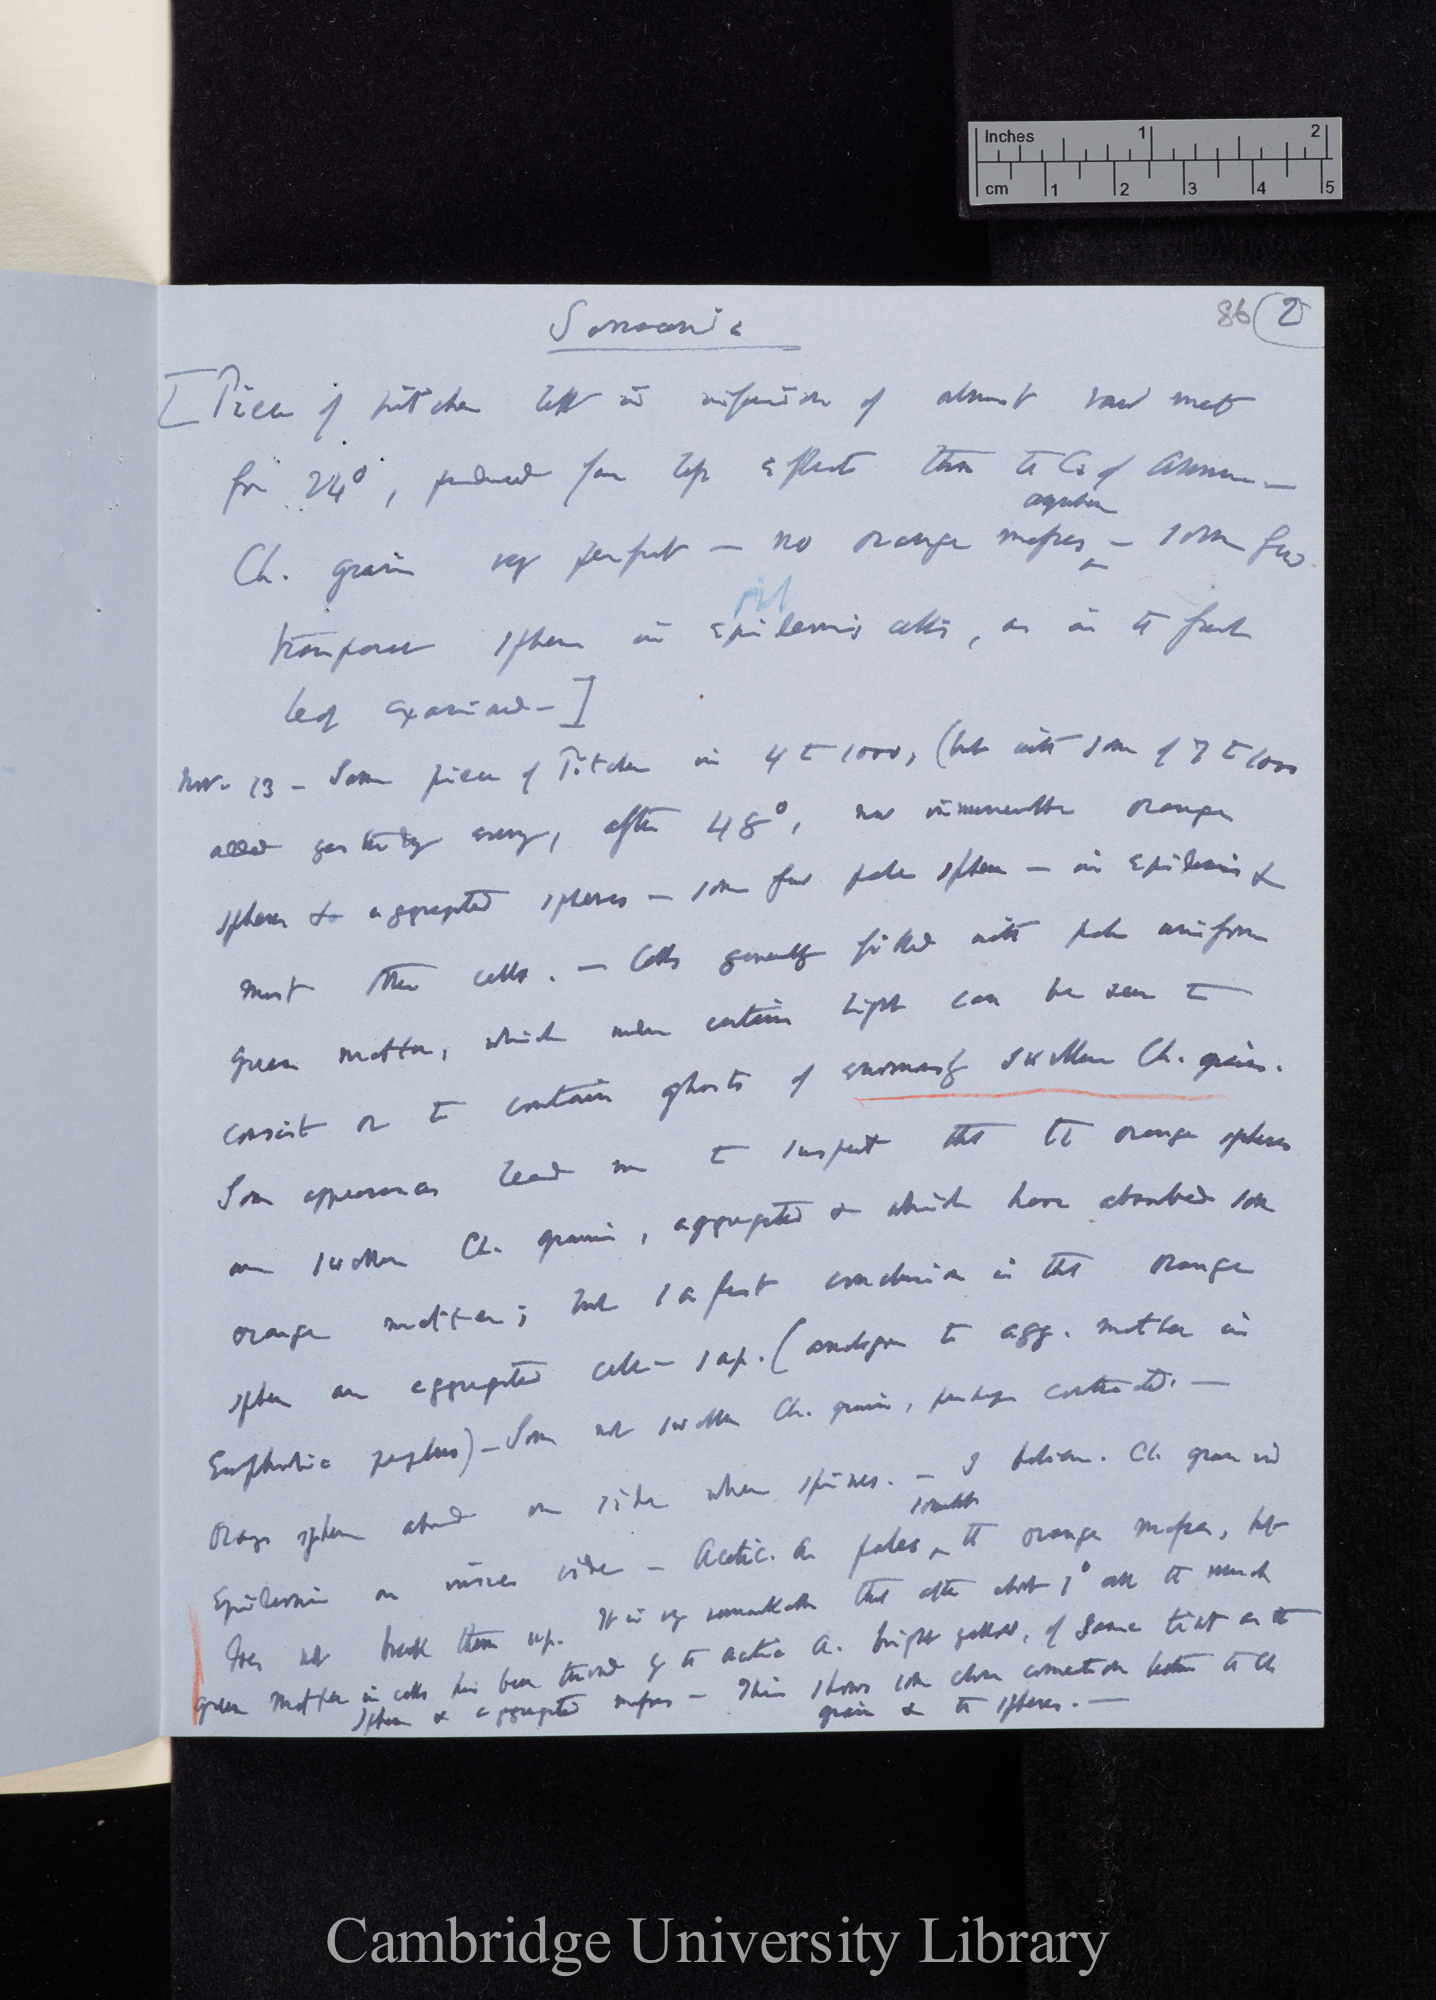 Inches 1 2
cm 1 2 3 4 5
86 (2
Sarracenia
[Piece of pitcher left in infusion of almost raw meat
for 24°, produced far less effect than the C. of Ammon —
Ch. grains very perfect — no orange masses — some few
transparent spheres in epidermis cells, as in the first
leaf examined —]
Nov. 13 — Some pieces of Pitcher in 4 to 1000, (but with some of 7 to 1000
added yesterday evening, after 48°, now innumerable orange
spheres & aggregated spheres — some few pale spheres — in epidermis &
most other cells. — Cells generally filled with pale uniform
green matter, which under certain light can be seen to
consist or to contain ghosts of enormously swollen Ch. grains.
Some appearances lead me to suspect that the orange spheres
are swollen Ch. grains, aggregated & which have absorbed some
orange matter; but safest conclusion is that orange
spheres are aggregated cell-sap. (analogous to agg. matter in
Euphorbia peplus) — Some not swollen Ch. grains, perhaps contracted. —
Orange spheres abound on side where spines. — I believe. Ch. grains in
somewhat
Epidermis on inner side — Acetic. A. pales ^ the orange masses, but
does not break them up. It is very remarkable that after about 1° all the much
green matter in cells has been turned by the acetic A. bright yellow, of same tint as the
spheres & aggregated masses — This shows some close connection between the Ch
grains & the spheres. —
Cambridge University Library